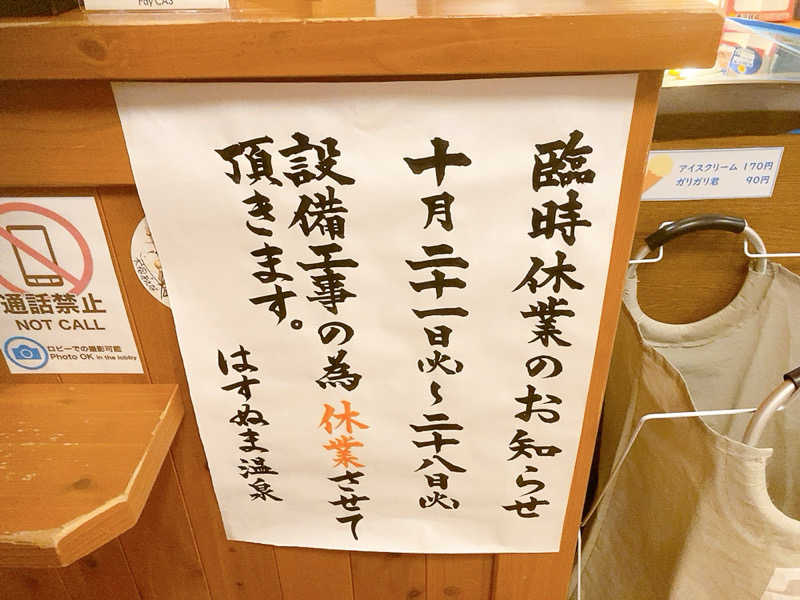 臨時休業のお知らせ
十月二十一日㊋～二十八日㊋
設備工事の為休業させて
頂きます。
はすぬま温泉
通話禁止
NOT CALL
ロビーでの撮影可能
Photo OK in the lobby
アイスクリーム 170円
ガリガリ君 90円